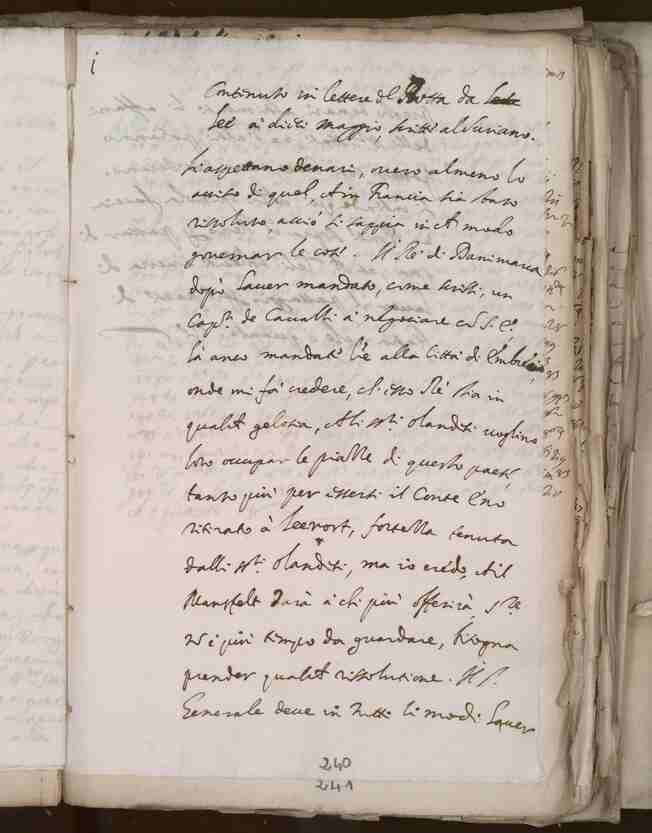 i
Continuto in lettere del Rotta da
Lee a dieci maggio, scritti al Suriano.
Si aspettano denari, overo almeno lo
aviso di quel, ch'in Francia sia stato
rissoluto, acciò si sappia in ch modo
governar le cose. Il Rè di Danimarca
dopò haver mandato, come scrissi, un
Capn. de Cavalli à negociare cõ S. E.
hà anco mandati lre alla Città di Embden,
onde mi fà credere, ch'esso Rè sia in
qualch gelosia, ch li Sri. Olandesi voglino
loro occupar le piazze di questo paese
tanto più per essersi il Conte Eno
ritirato à Leerort, fortezza tenuta
dalli Sri. Olandesi, ma io credo, ch'il
Mansfelt darà a chi più offerirà
più tempo da guardare, bisogna
prender qualch rissolutione. Il S.
Generale deve in tutti li modi haver
240
241